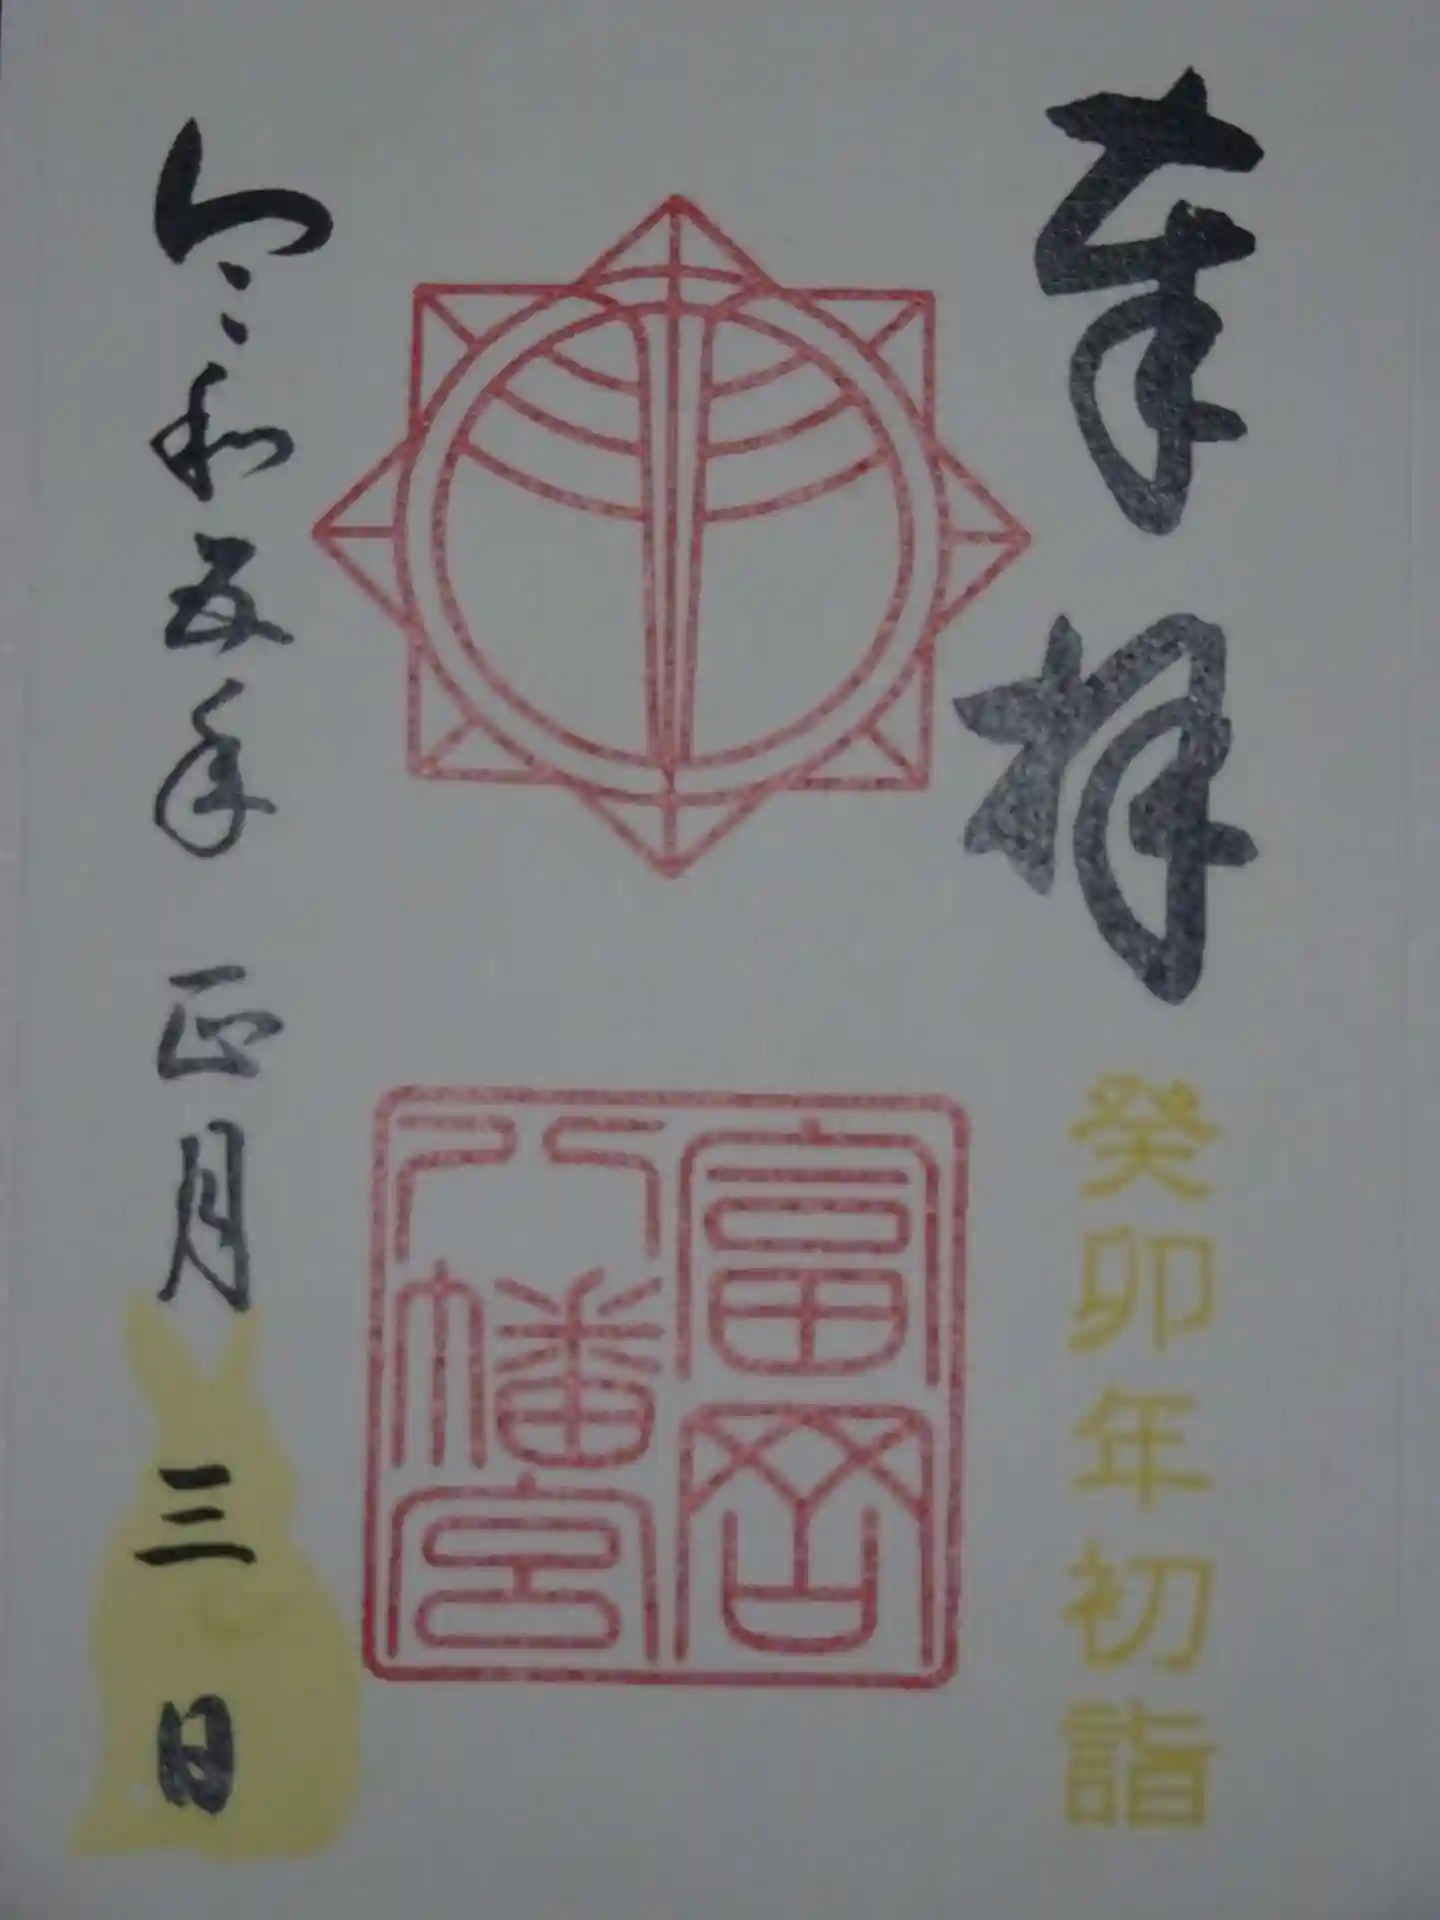 奉拝
癸卯年初詣
富岡
八幡宮
令和五年 正月 三 日